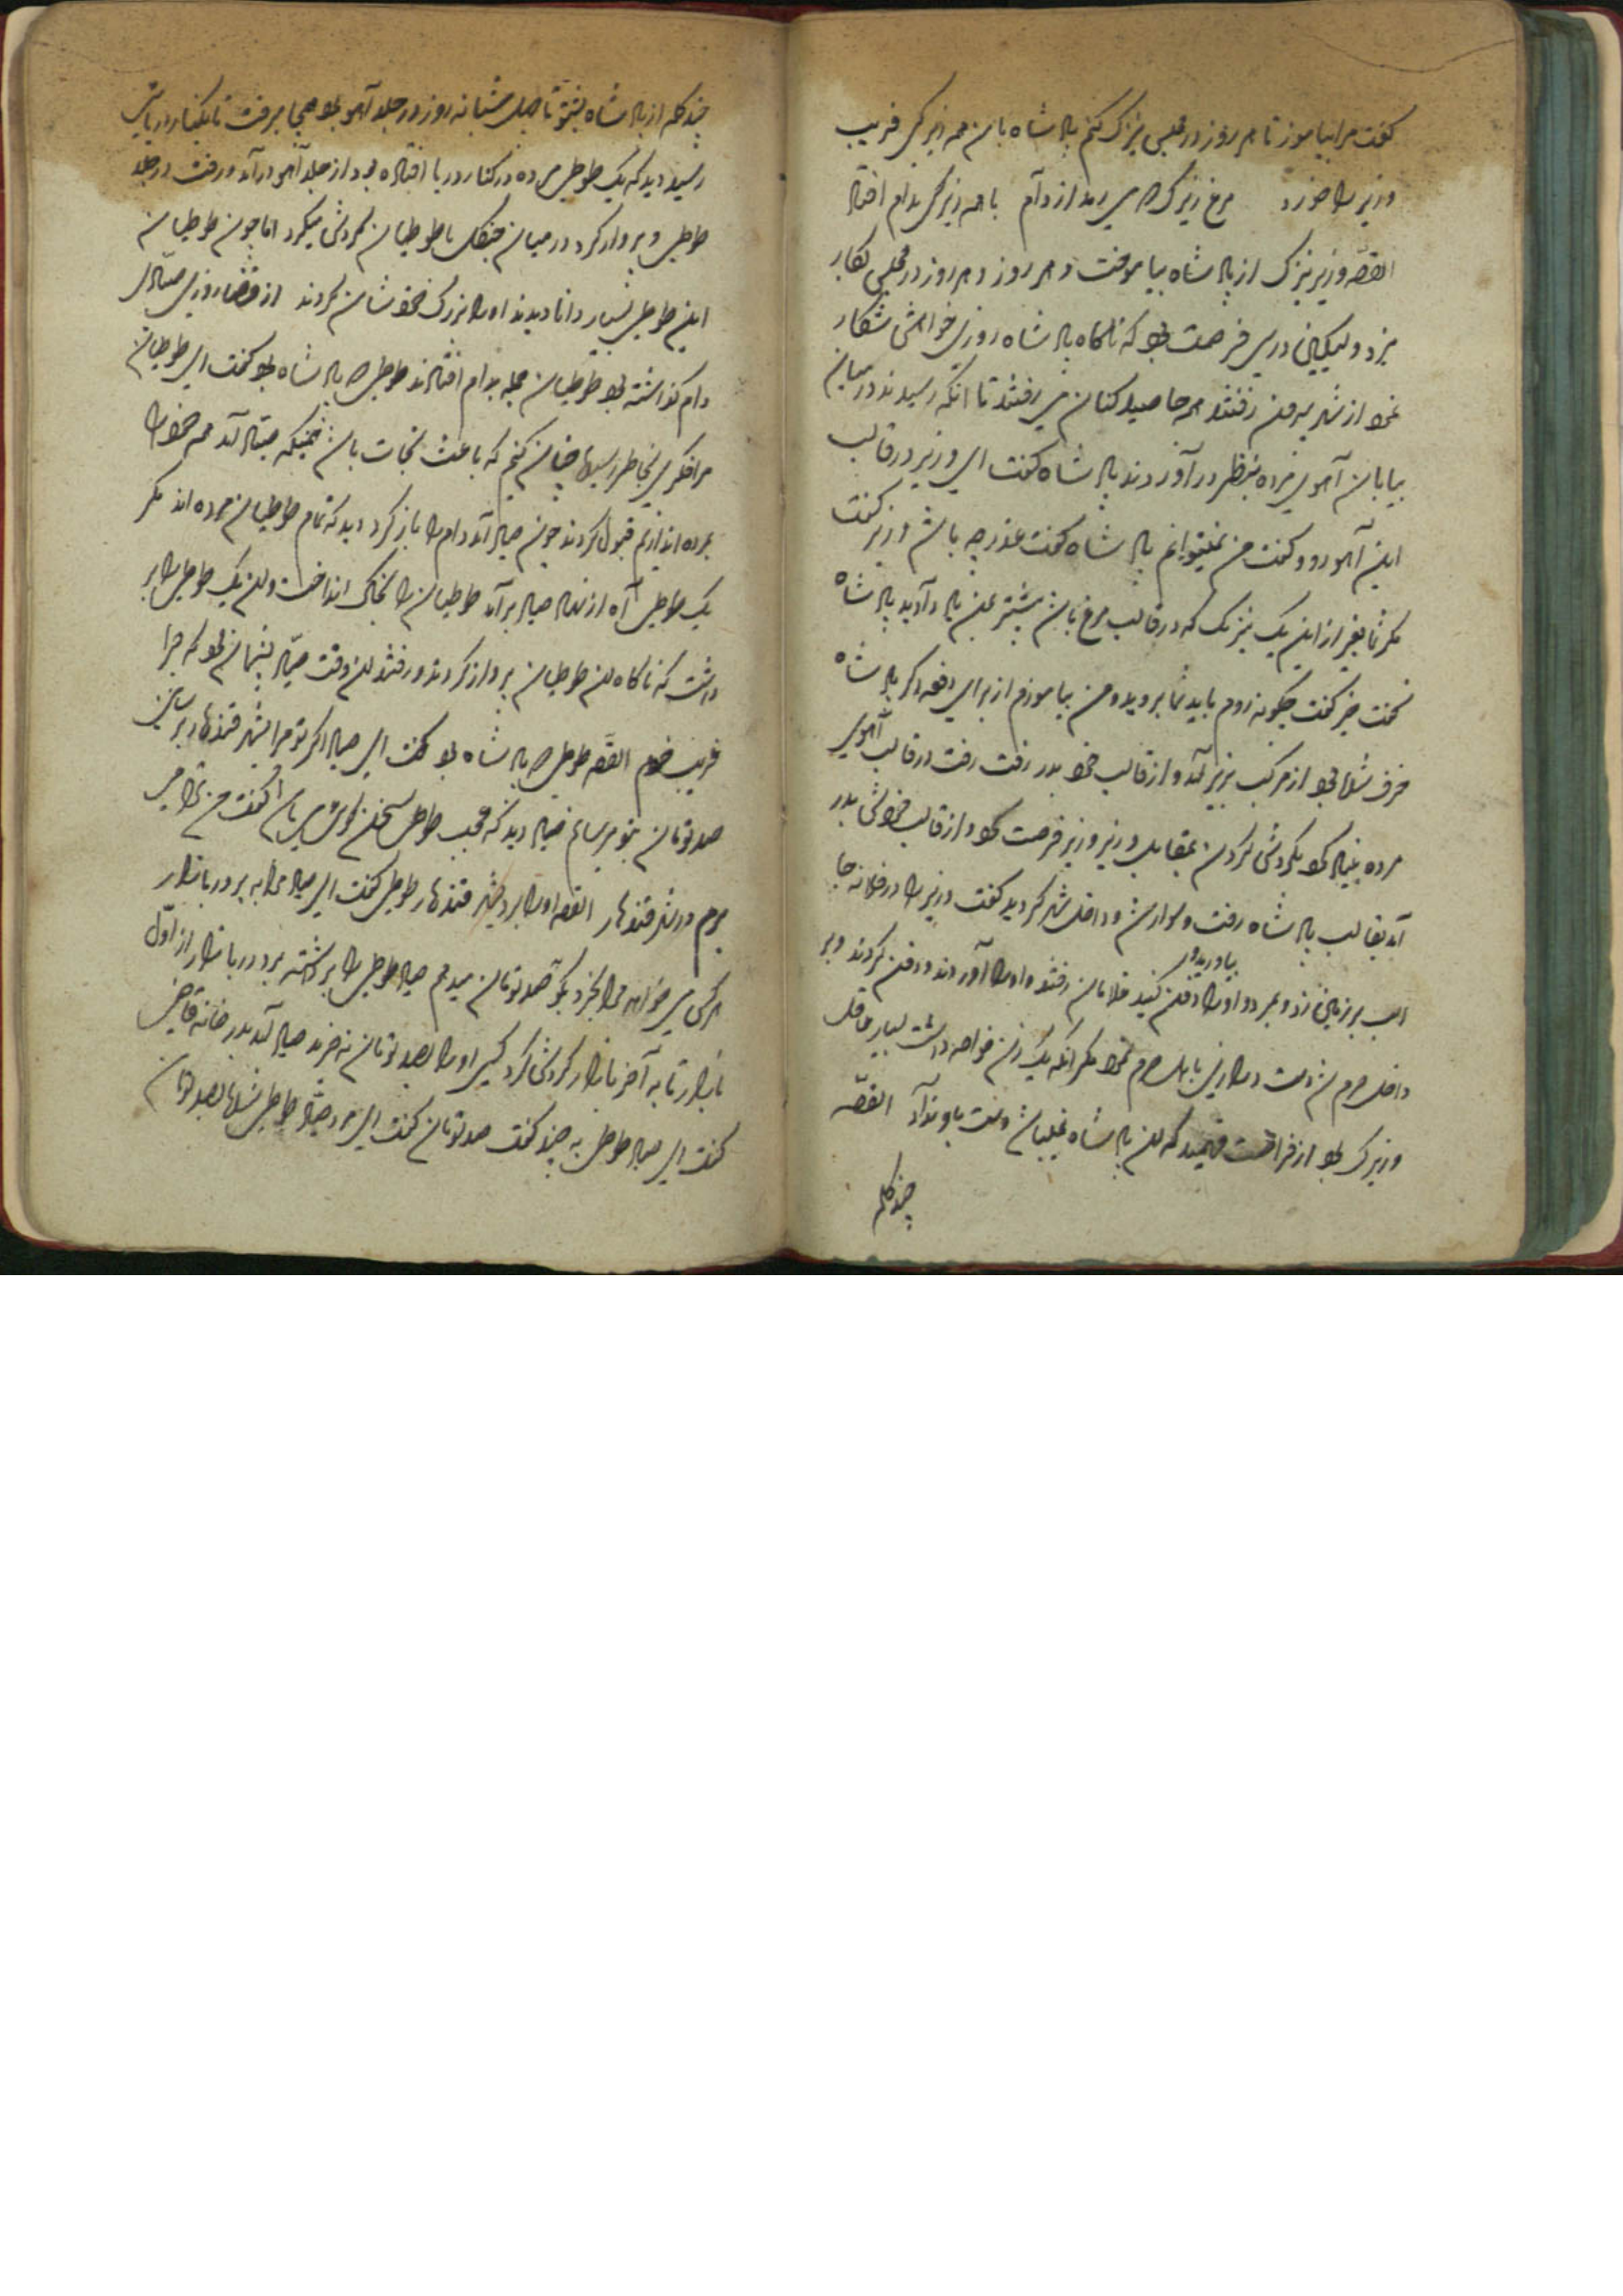 گفت مرا بیاموز تا هر روز در مجلس نیرنگ کنم پادشاه باین همه زیرکی فریب
وزیر را خورد مرغ زیرک که میرمد از دام با همه زیرکی بدام افتاد
القصه وزیر نیرنگ از پادشاه بیاموخت و هر روز و هر روز در مجلس بکار
برد ولیکن در پی فرصت بود که ناگاه پادشاه روزی خواهش شکار
نمود از شهر بیرون رفتند هر جا صید کنان می رفتند تا آنکه رسیدند در میان
بیابان آهوی مرده بنظر در آوردند پادشاه گفت ای وزیر در قالب
این آهو رو و گفت من نمیتوانم پادشاه گفت عذر چه باشد وزیر گفت
مگر شما بغیر از این یک نیرنگ که در قالب مرغ باشد بیشتر بمن یاد دادید پادشاه
گفت خیر گفت چگونه روم باید شما بروید و من بیاموزم از برای دفعه دگر پادشاه
حرف شنو بود از مرکب بزیر آمد و از قالب خود بدر رفت رفت در قالب آهوی
مرده بنیاد کرد بگردش کردن بمقابل وزیر وزیر فرصت کرد و از قالب خودش بدر
آمد بقالب پادشاه رفت و سوار شد و داخل شهر گردید گفت وزیر را در فلانه جا
اسب بر زمین زد و بمرد او را بیاورید و دفن کنید غلامان رفتند و او را آوردند و دفن کردند وزیر
داخل حرم شد دست درازی باهل حرم نمود مگر آنکه یک زن خواجه داشت بسیار عاقل
و زیرک بود از فراست فهمید که این پادشاه نمیباشد دست باو نداد القصه
چند کلمه
چند کلمه از پادشاه بشنو تا چهل شبانه روز در جلد آهو بود همه جا میرفت تا بکنار دریائی
رسید دید که یک طوطی مرده در کنار دریا افتاده بود از جلد آهو در آمد و رفت در جلد
طوطی و پرواز کرد در میان جنگل با طوطیان گردش میکرد اما چون طوطیان
این طوطی بسیار دانا دیدند او را بزرگ خودشان کردند از قضا روزی صیادی
دام گذاشته بود طوطیان جمله بدام افتادند طوطی که پادشاه بود گفت ای طوطیان
مرا فکری بخاطر رسید چنان کنیم که باعث نجات باشد همینکه صیاد آمد همه خود را
بمرده اندازیم قبول کردند چون صیاد آمد دام را باز کرد دید که تمام طوطیان مرده اند مگر
یک طوطی آه از نهاد صیاد بر آمد طوطیان را بخاک انداخت و این یک طوطی را بر
داشت که ناگاه این طوطیان پرواز کردند و رفتند این وقت صیاد پشیمان بود که چرا
فریب خوردم القصه طوطی که پادشاه بود گفت ای صیاد اگر تو مرا بشهر قندهار برسانی
صد تومان بتو میرسانم صیاد دید که عجب طوطی سخن گوئی میباشد گفت من ترا می
برم در شهر قندهار القصه او را برد بشهر قندهار طوطی گفت ای صیاد مرا ببر در بازار
هر کس میخواهد مرا بخرد بگو صد تومان میدهم صیاد طوطی را برداشته برد در بازار از اول
بازار تا به آخر بازار گردش کرد کسی او را بصد تومان نه خرید صیاد آمد بدر خانه قاضی
گفت ای صیاد طوطی به چند گفت صد تومان گفت ای مرد صیاد طوطی شما بصد تومان